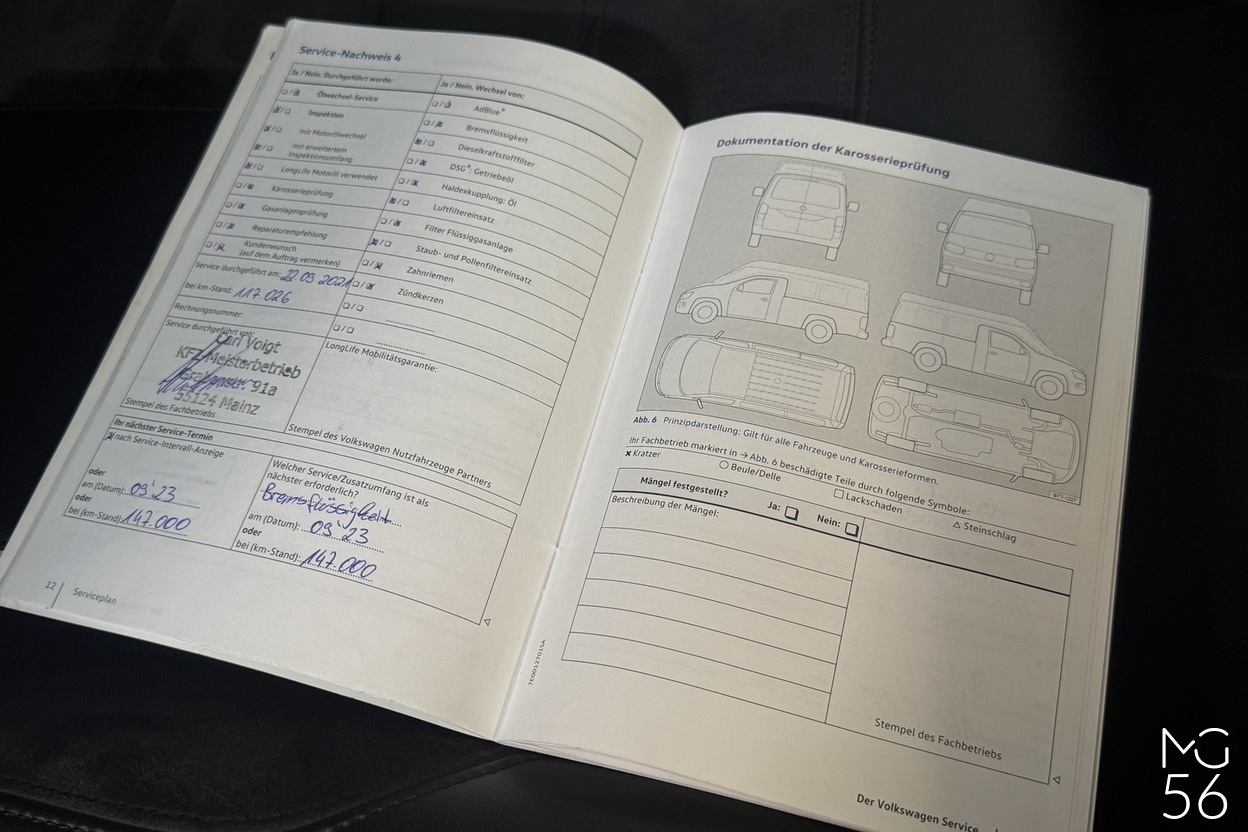 Service-Nachweis 4
Ja / Nein. Durchgeführt wurde:
Ölwechsel-Service
Inspektion
mit Motorölwechsel
mit erweitertem
Inspektionsumfang
LongLife Motoröl verwendet
Karosserieprüfung
Gasanlagenprüfung
Reparaturempfehlung
Kundenwunsch
(auf dem Auftrag vermerken)
Service durchgeführt am: 22.09.2021
bei km-Stand: 117.026
Rechnungsnummer:
Service durchgeführt von:
Carl Voigt
KFZ-Meisterbetrieb
91a
55124 Mainz
Stempel des Fachbetriebs
Ja / Nein. Wechsel von:
AdBlue®
Bremsflüssigkeit
Dieselkraftstofffilter
DSG®: Getriebeöl
Haldexkupplung: Öl
Luftfiltereinsatz
Filter Flüssiggasanlage
Staub- und Pollenfiltereinsatz
Zahnriemen
Zündkerzen
LongLife Mobilitätsgarantie:
Stempel des Volkswagen Nutzfahrzeuge Partners
Ihr nächster Service-Termin
nach Service-Intervall-Anzeige
oder
am (Datum): 09'23
oder
bei (km-Stand): 147.000
Welcher Service/Zusatzumfang ist als
nächster erforderlich?
Bremsflüssigkeit
am (Datum): 09'23
oder
bei (km-Stand): 147.000
12 Serviceplan
Dokumentation der Karosserieprüfung
Abb. 6 Prinzipdarstellung: Gilt für alle Fahrzeuge und Karosserieformen.
Ihr Fachbetrieb markiert in → Abb. 6 beschädigte Teile durch folgende Symbole:
Kratzer
Beule/Delle
Lackschaden
Steinschlag
Mängel festgestellt?
Ja:
Nein:
Beschreibung der Mängel:
Stempel des Fachbetriebs
7E0012701SA
Der Volkswagen Service
MG
56